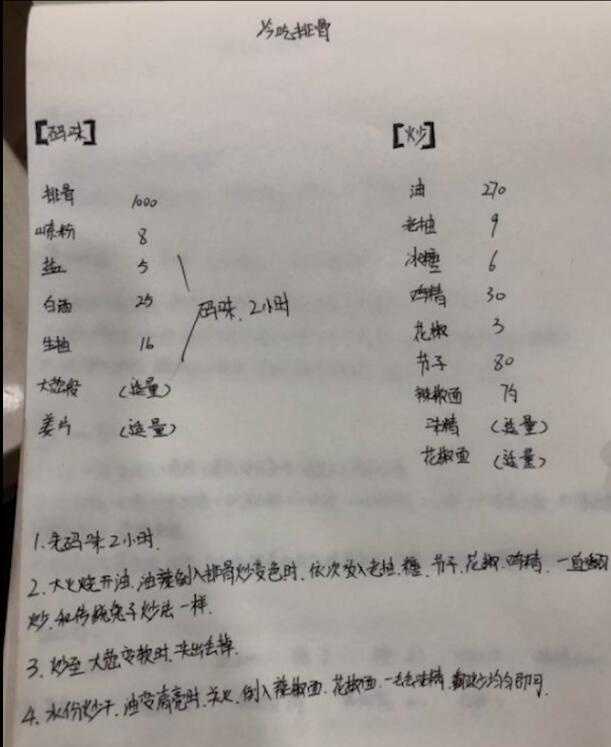 冷吃排骨
[码味]
排骨 1000
嫩粉 8
盐 5
白酒 25
生抽 16
大葱段 (适量)
姜片 (适量)
码味, 2小时
[炒]
油 270
老抽 9
冰糖 6
鸡精 30
花椒 3
节子 80
辣椒面
味精 (适量)
花椒面 (适量)
1. 先码味2小时.
2. 大火烧开油, 油辣倒入排骨炒变色时, 依次放入老抽, 糖, 节子, 花椒, 鸡精, 一直翻
炒, 和传统兔子炒法一样.
3. 炒至大葱变软时, 夹出丢掉.
4. 水份炒干, 油变清亮时, 关火, 倒入辣椒面, 花椒面, 一点点味精, 翻炒均匀即可.